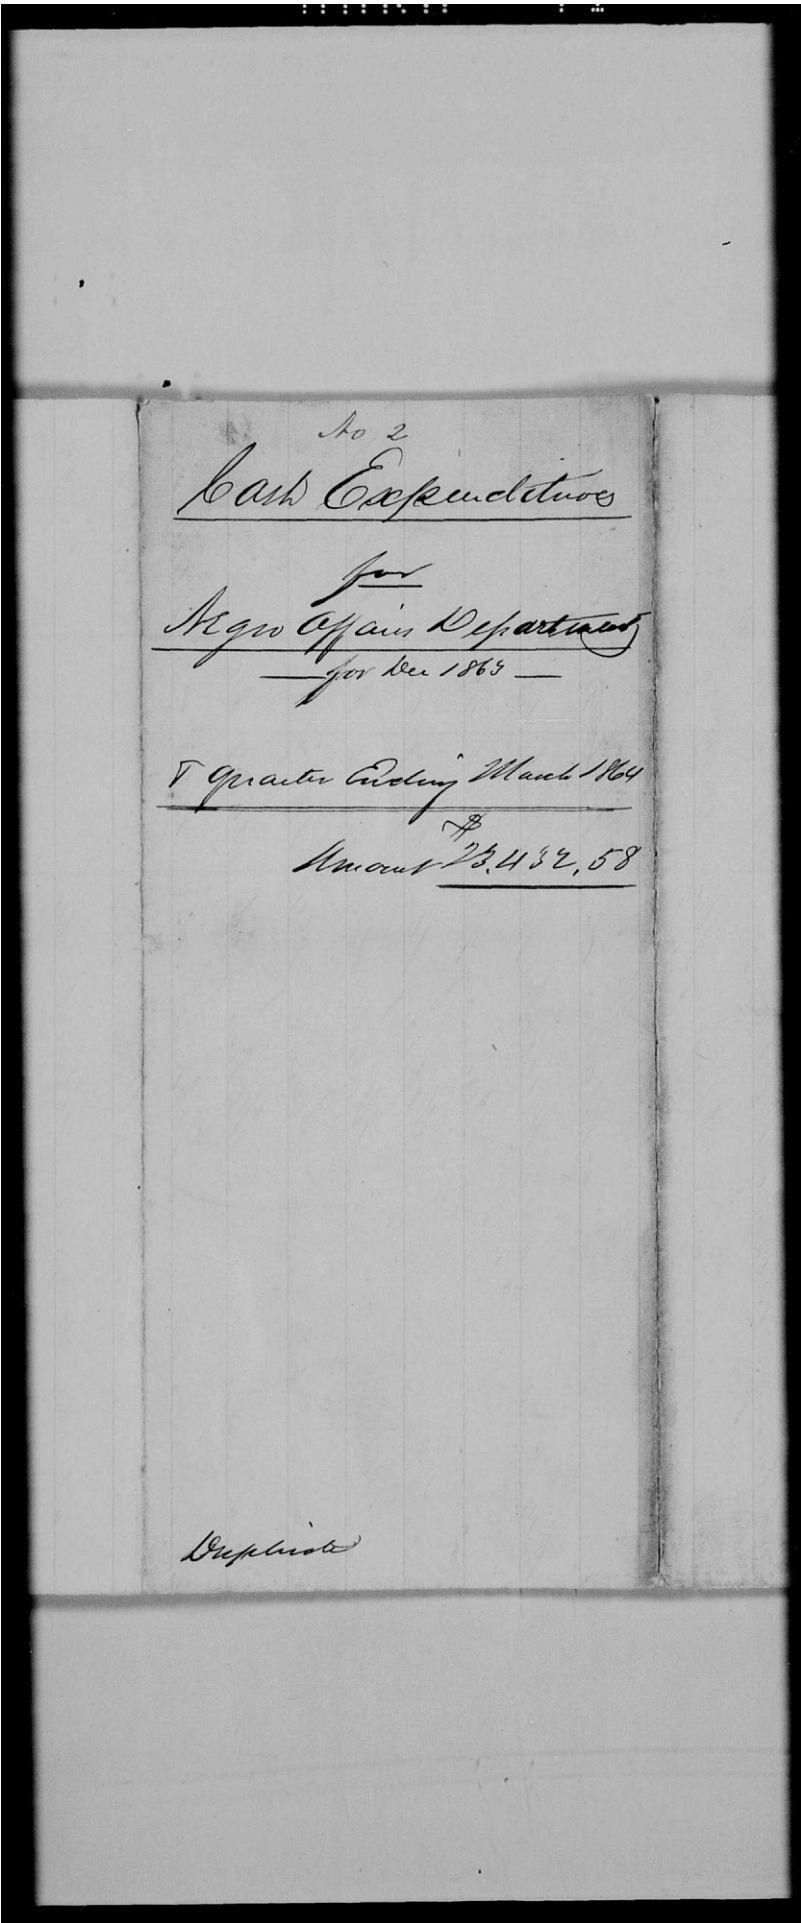 No 2
Cash Expenditures
for
Negro Affairs Department
for Dec 1863
& quarter Ending March 1864
$
Amount 23.432.58
Duplicate